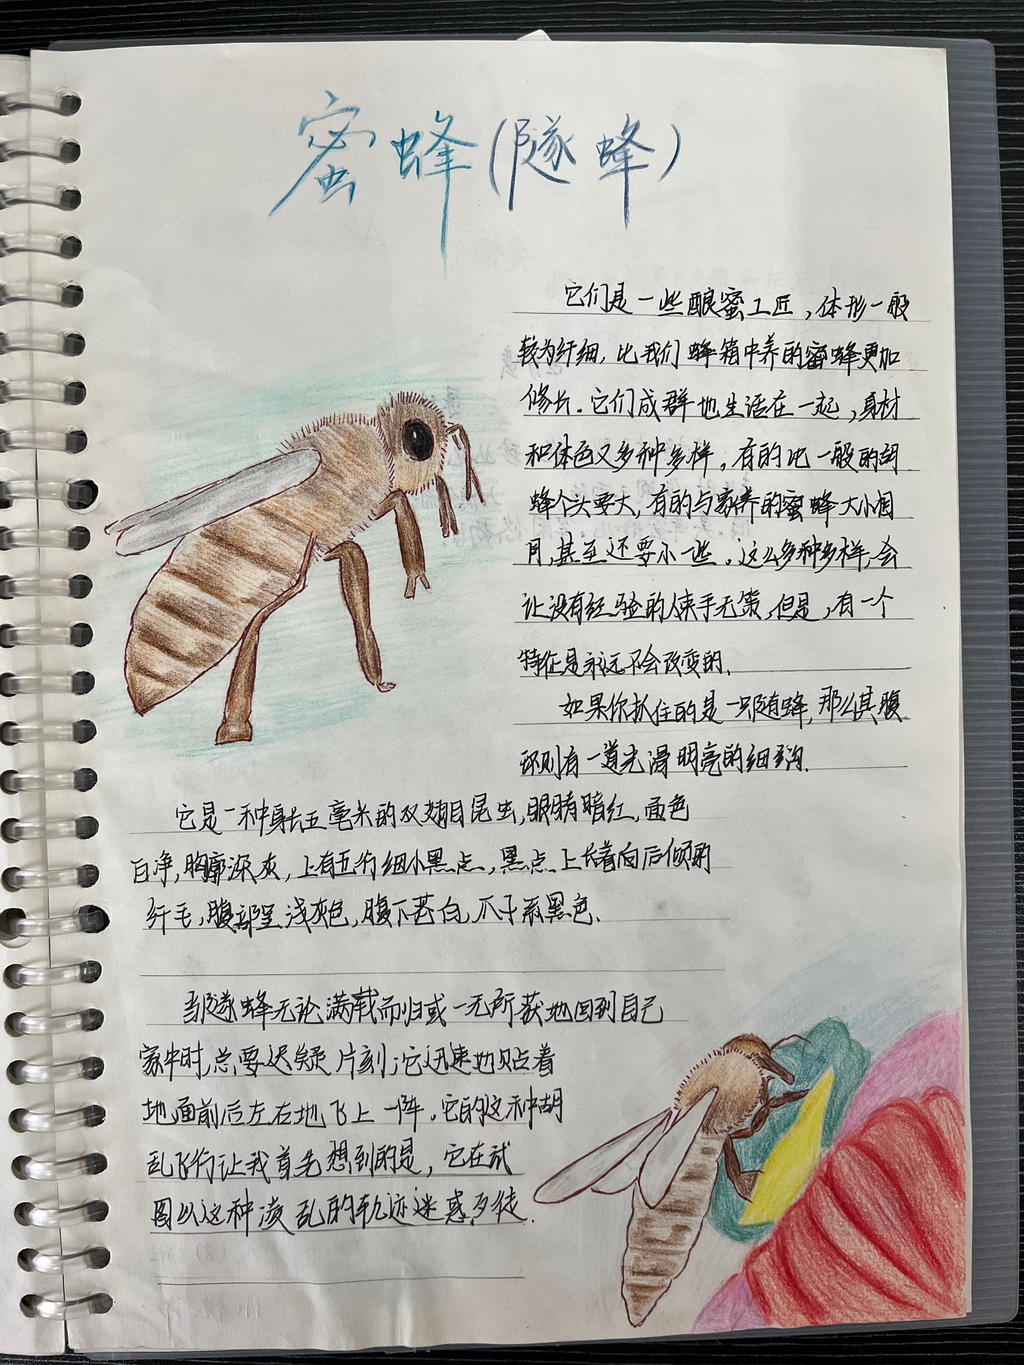 蜜蜂(隧蜂)
它们是一些酿蜜工匠,体形一般
较为纤细,比我们蜂箱中养的蜜蜂更加
修长.它们成群地生活在一起,身材
和体色又多种多样,有的比一般的胡
蜂个头要大,有的与家养的蜜蜂大小相
同,甚至还要小一些.这么多种多样,会
让没有经验的人束手无策,但是,有一个
特征是永远不会改变的.
如果你抓住的是一只隧蜂,那么其腹
部则有一道光滑明亮的细沟.
它是一种身长五毫米的双翅目昆虫,眼睛暗红,面色
白净,胸廓深灰,上有五行细小黑点,黑点上长着向后倾的
纤毛,腹部呈浅灰色,腹下苍白,爪子系黑色.
当隧蜂无论满载而归或一无所获地回到自己
家中时,总要迟疑片刻;它迅速地贴着
地面前后左右地飞上一阵.它的这种胡
乱飞行让我首先想到的是,它在试
图以这种凌乱的轨迹迷惑歹徒.